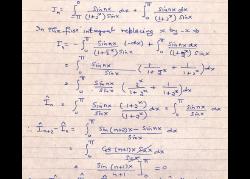 I_n = ∫_{-π}^{0} sin nx / (1+2^x) sin x dx + ∫_0^π sin nx / (1+2^x) sin x dx
In the first integral replacing x by -x ⇒
I_n = -∫_π^0 sin nx / (1+2^{-x}) sin x (-dx) + ∫_0^π sin nx dx / (1+2^x) sin x
= ∫_0^π sin nx / sin x ( 1 / 1+2^{-x} + 1 / 1+2^x ) dx
= ∫_0^π sin nx / sin x ( 2^x / 1+2^x + 1 / 1+2^x ) dx
I_n = ∫_0^π sin nx / sin x (1+2^x) / (1+2^x) dx = ∫_0^π sin nx / sin x dx
I_{n+2} - I_n = ∫_0^π sin (n+2)x - sin nx / sin x dx
= ∫_0^π cos (n+1)x sin x / sin x dx
= sin (n+1)x / n+1 |_0^π = 0